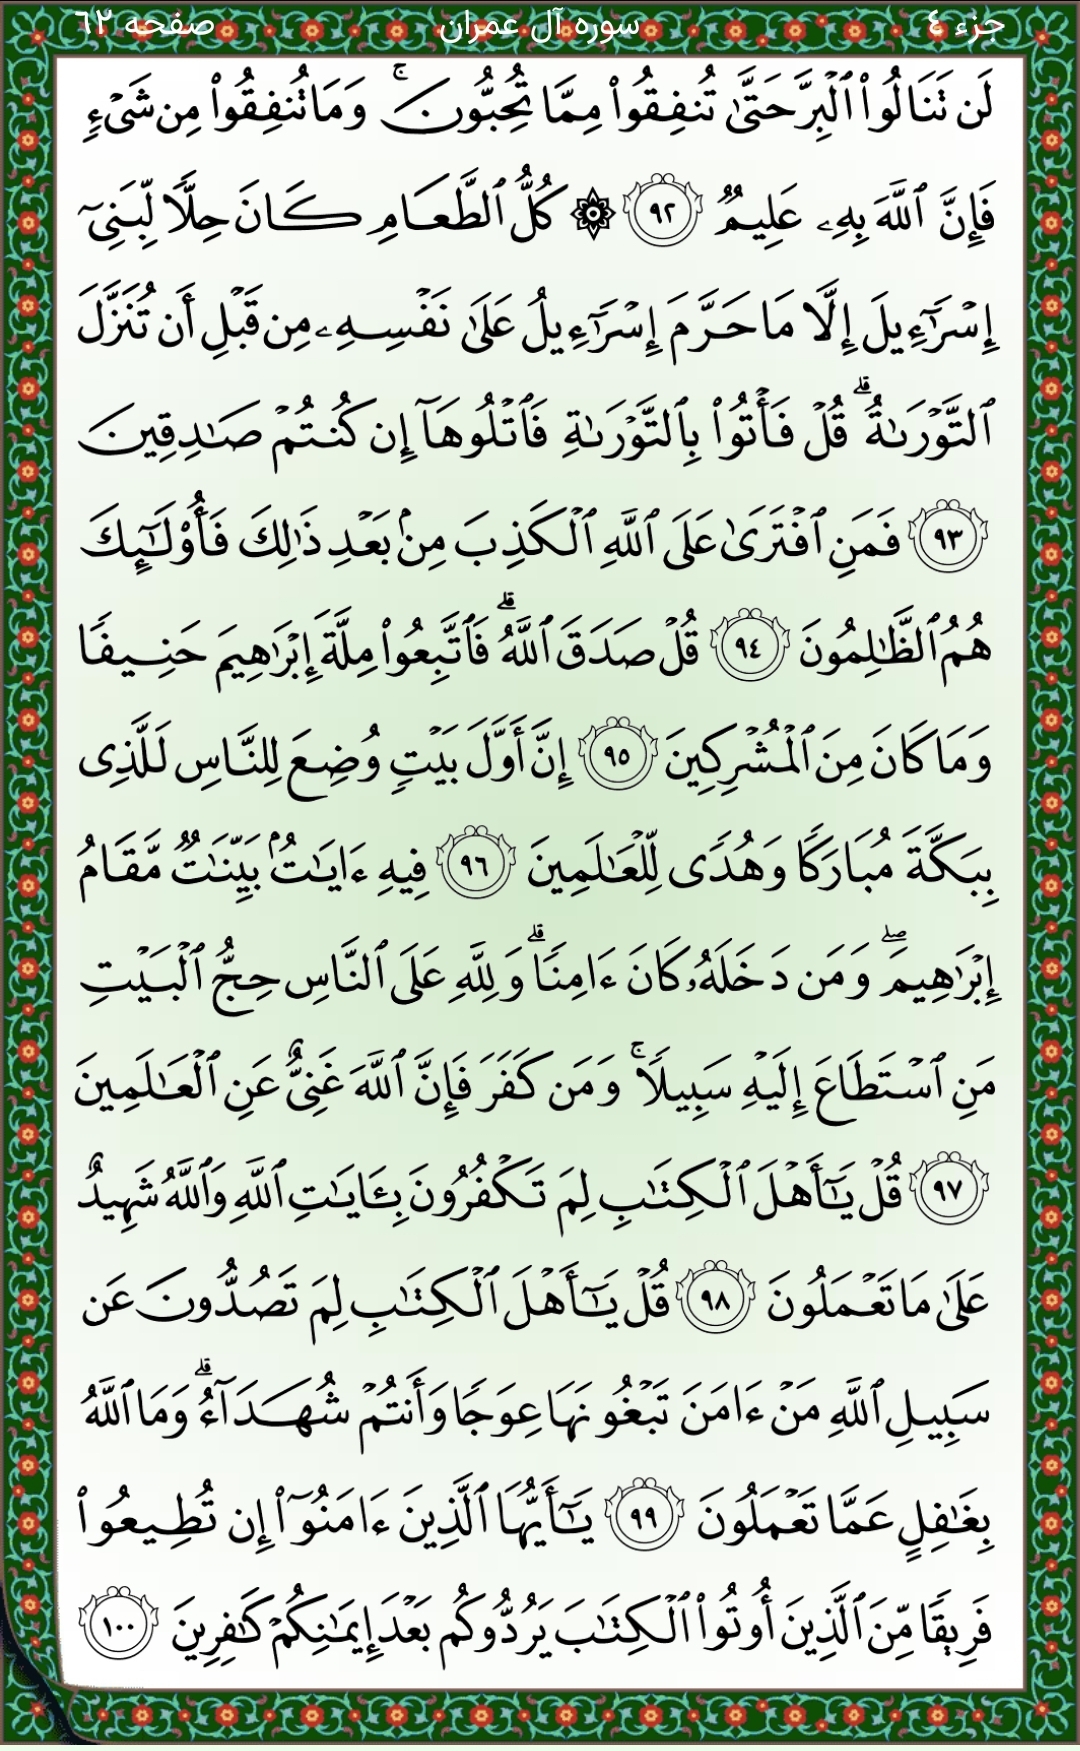 جزء ٤ سوره آل عمران صفحه ٦٢
لَن تَنَالُوا۟ ٱلْبِرَّ حَتَّىٰ تُنفِقُوا۟ مِمَّا تُحِبُّونَ ۚ وَمَا تُنفِقُوا۟ مِن شَىْءٍ
فَإِنَّ ٱللَّهَ بِهِۦ عَلِيمٌ ٩٢ ۞ كُلُّ ٱلطَّعَامِ كَانَ حِلًّا لِّبَنِىٓ
إِسْرَٰٓءِيلَ إِلَّا مَا حَرَّمَ إِسْرَٰٓءِيلُ عَلَىٰ نَفْسِهِۦ مِن قَبْلِ أَن تُنَزَّلَ
ٱلتَّوْرَىٰةُ ۗ قُلْ فَأْتُوا۟ بِٱلتَّوْرَىٰةِ فَٱتْلُوهَآ إِن كُنتُمْ صَـٰدِقِينَ
٩٣ فَمَنِ ٱفْتَرَىٰ عَلَى ٱللَّهِ ٱلْكَذِبَ مِنۢ بَعْدِ ذَٰلِكَ فَأُو۟لَـٰٓئِكَ
هُمُ ٱلظَّـٰلِمُونَ ٩٤ قُلْ صَدَقَ ٱللَّهُ ۗ فَٱتَّبِعُوا۟ مِلَّةَ إِبْرَٰهِيمَ حَنِيفًا
وَمَا كَانَ مِنَ ٱلْمُشْرِكِينَ ٩٥ إِنَّ أَوَّلَ بَيْتٍ وُضِعَ لِلنَّاسِ لَلَّذِى
بِبَكَّةَ مُبَارَكًا وَهُدًى لِّلْعَـٰلَمِينَ ٩٦ فِيهِ ءَايَـٰتٌۢ بَيِّنَـٰتٌ مَّقَامُ
إِبْرَٰهِيمَ ۖ وَمَن دَخَلَهُۥ كَانَ ءَامِنًا ۗ وَلِلَّهِ عَلَى ٱلنَّاسِ حِجُّ ٱلْبَيْتِ
مَنِ ٱسْتَطَاعَ إِلَيْهِ سَبِيلًا ۚ وَمَن كَفَرَ فَإِنَّ ٱللَّهَ غَنِىٌّ عَنِ ٱلْعَـٰلَمِينَ
٩٧ قُلْ يَـٰٓأَهْلَ ٱلْكِتَـٰبِ لِمَ تَكْفُرُونَ بِـَٔايَـٰتِ ٱللَّهِ وَٱللَّهُ شَهِيدٌ
عَلَىٰ مَا تَعْمَلُونَ ٩٨ قُلْ يَـٰٓأَهْلَ ٱلْكِتَـٰبِ لِمَ تَصُدُّونَ عَن
سَبِيلِ ٱللَّهِ مَنْ ءَامَنَ تَبْغُونَهَا عِوَجًا وَأَنتُمْ شُهَدَآءُ ۗ وَمَا ٱللَّهُ
بِغَـٰفِلٍ عَمَّا تَعْمَلُونَ ٩٩ يَـٰٓأَيُّهَا ٱلَّذِينَ ءَامَنُوٓا۟ إِن تُطِيعُوا۟
فَرِيقًا مِّنَ ٱلَّذِينَ أُوتُوا۟ ٱلْكِتَـٰبَ يَرُدُّوكُم بَعْدَ إِيمَـٰنِكُمْ كَـٰفِرِينَ ١٠٠